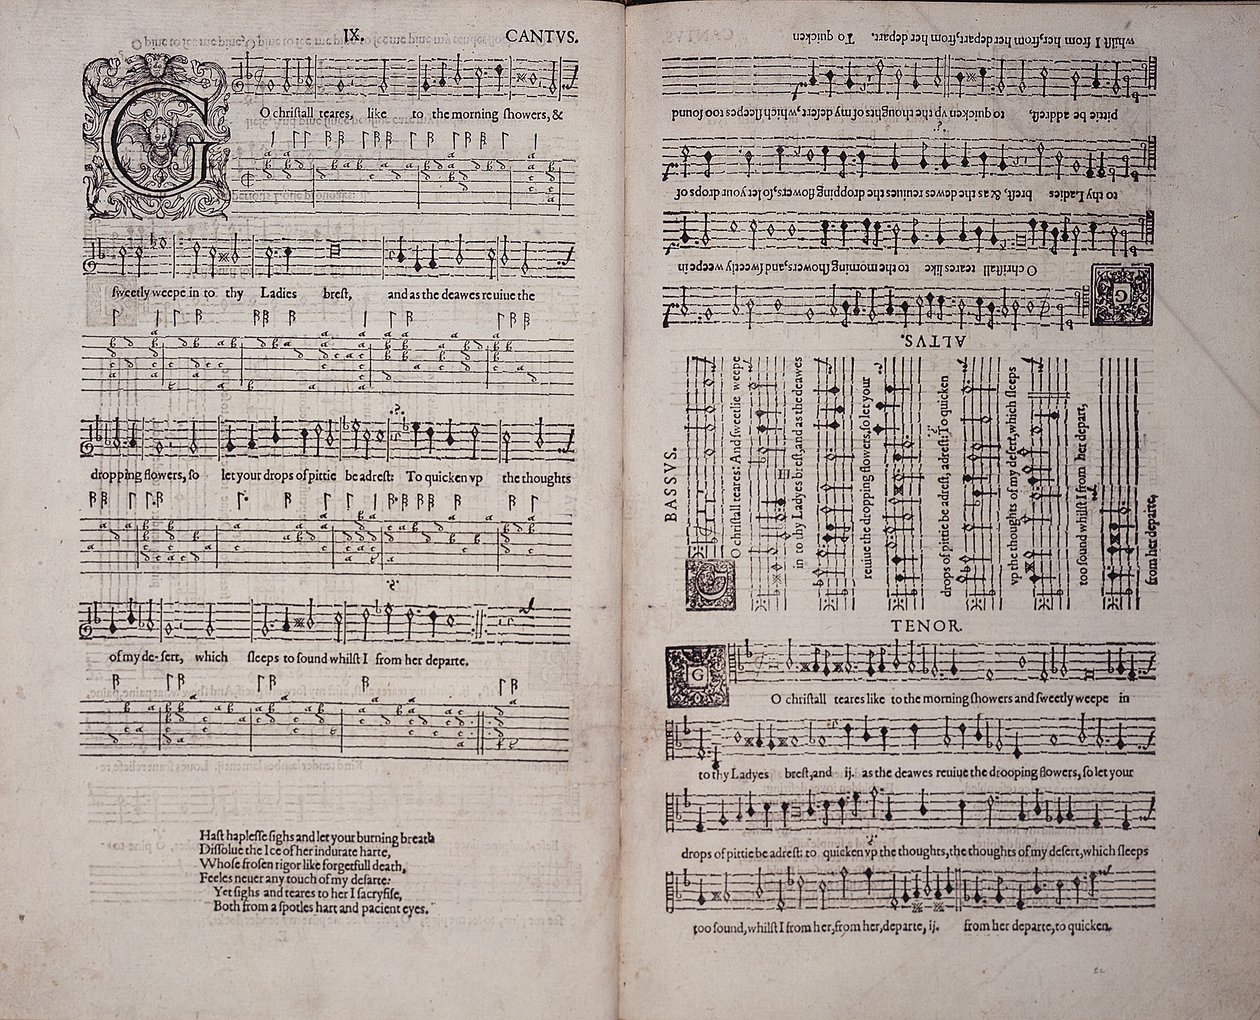 IX.
CANTVS.
GO chriſtall teares, like to the morning ſhowers, &
ſweetly weepe in to thy Ladies breſt, and as the deawes reuiue the
dropping flowers, ſo let your drops of pittie be adreſt: To quicken vp the thoughts
of my de-ſert, which ſleeps to ſound whilſt I from her departe.
Haſt hapleſſe ſighs and let your burning breath
Diſſolue the Ice of her indurate harte,
Whoſe froſen rigor like forgetfull death,
Feeles neuer any touch of my deſarte:
Yet ſighs and teares to her I ſacryfiſe,
Both from a ſpotles hart and pacient eyes.
ALTVS.
GO chriſtall teares like to the morning ſhowers, and ſweetly weepe in
to thy Ladies breſt, & as the deawes reuiues the dropping flowers, ſo let your drops of
pittie be adreſt, to quicken vp the thoughts of my deſert, which ſleepes too ſound
whilſt I from her, from her depart, from her depart. To quicken
BASSVS.
GO chriſtall teares: And ſweetlie weepe
in to thy Ladyes breſt, and as the deawes
reuiue the dropping flowers, ſo let your
drops of pittie be adreſt, adreſt: To quicken
vp the thoughts of my deſert, which ſleeps
too ſound whilſt I from her depart,
from her departe,
TENOR.
GO chriſtall teares like to the morning ſhowers and ſweetly weepe in
to thy Ladyes breſt, and ij. as the deawes reuiue the drooping flowers, ſo let your
drops of pittie be adreſt: to quicken vp the thoughts, the thoughts of my deſert, which ſleeps
too ſound, whilſt I from her, from her, departe, ij. from her departe, to quicken.